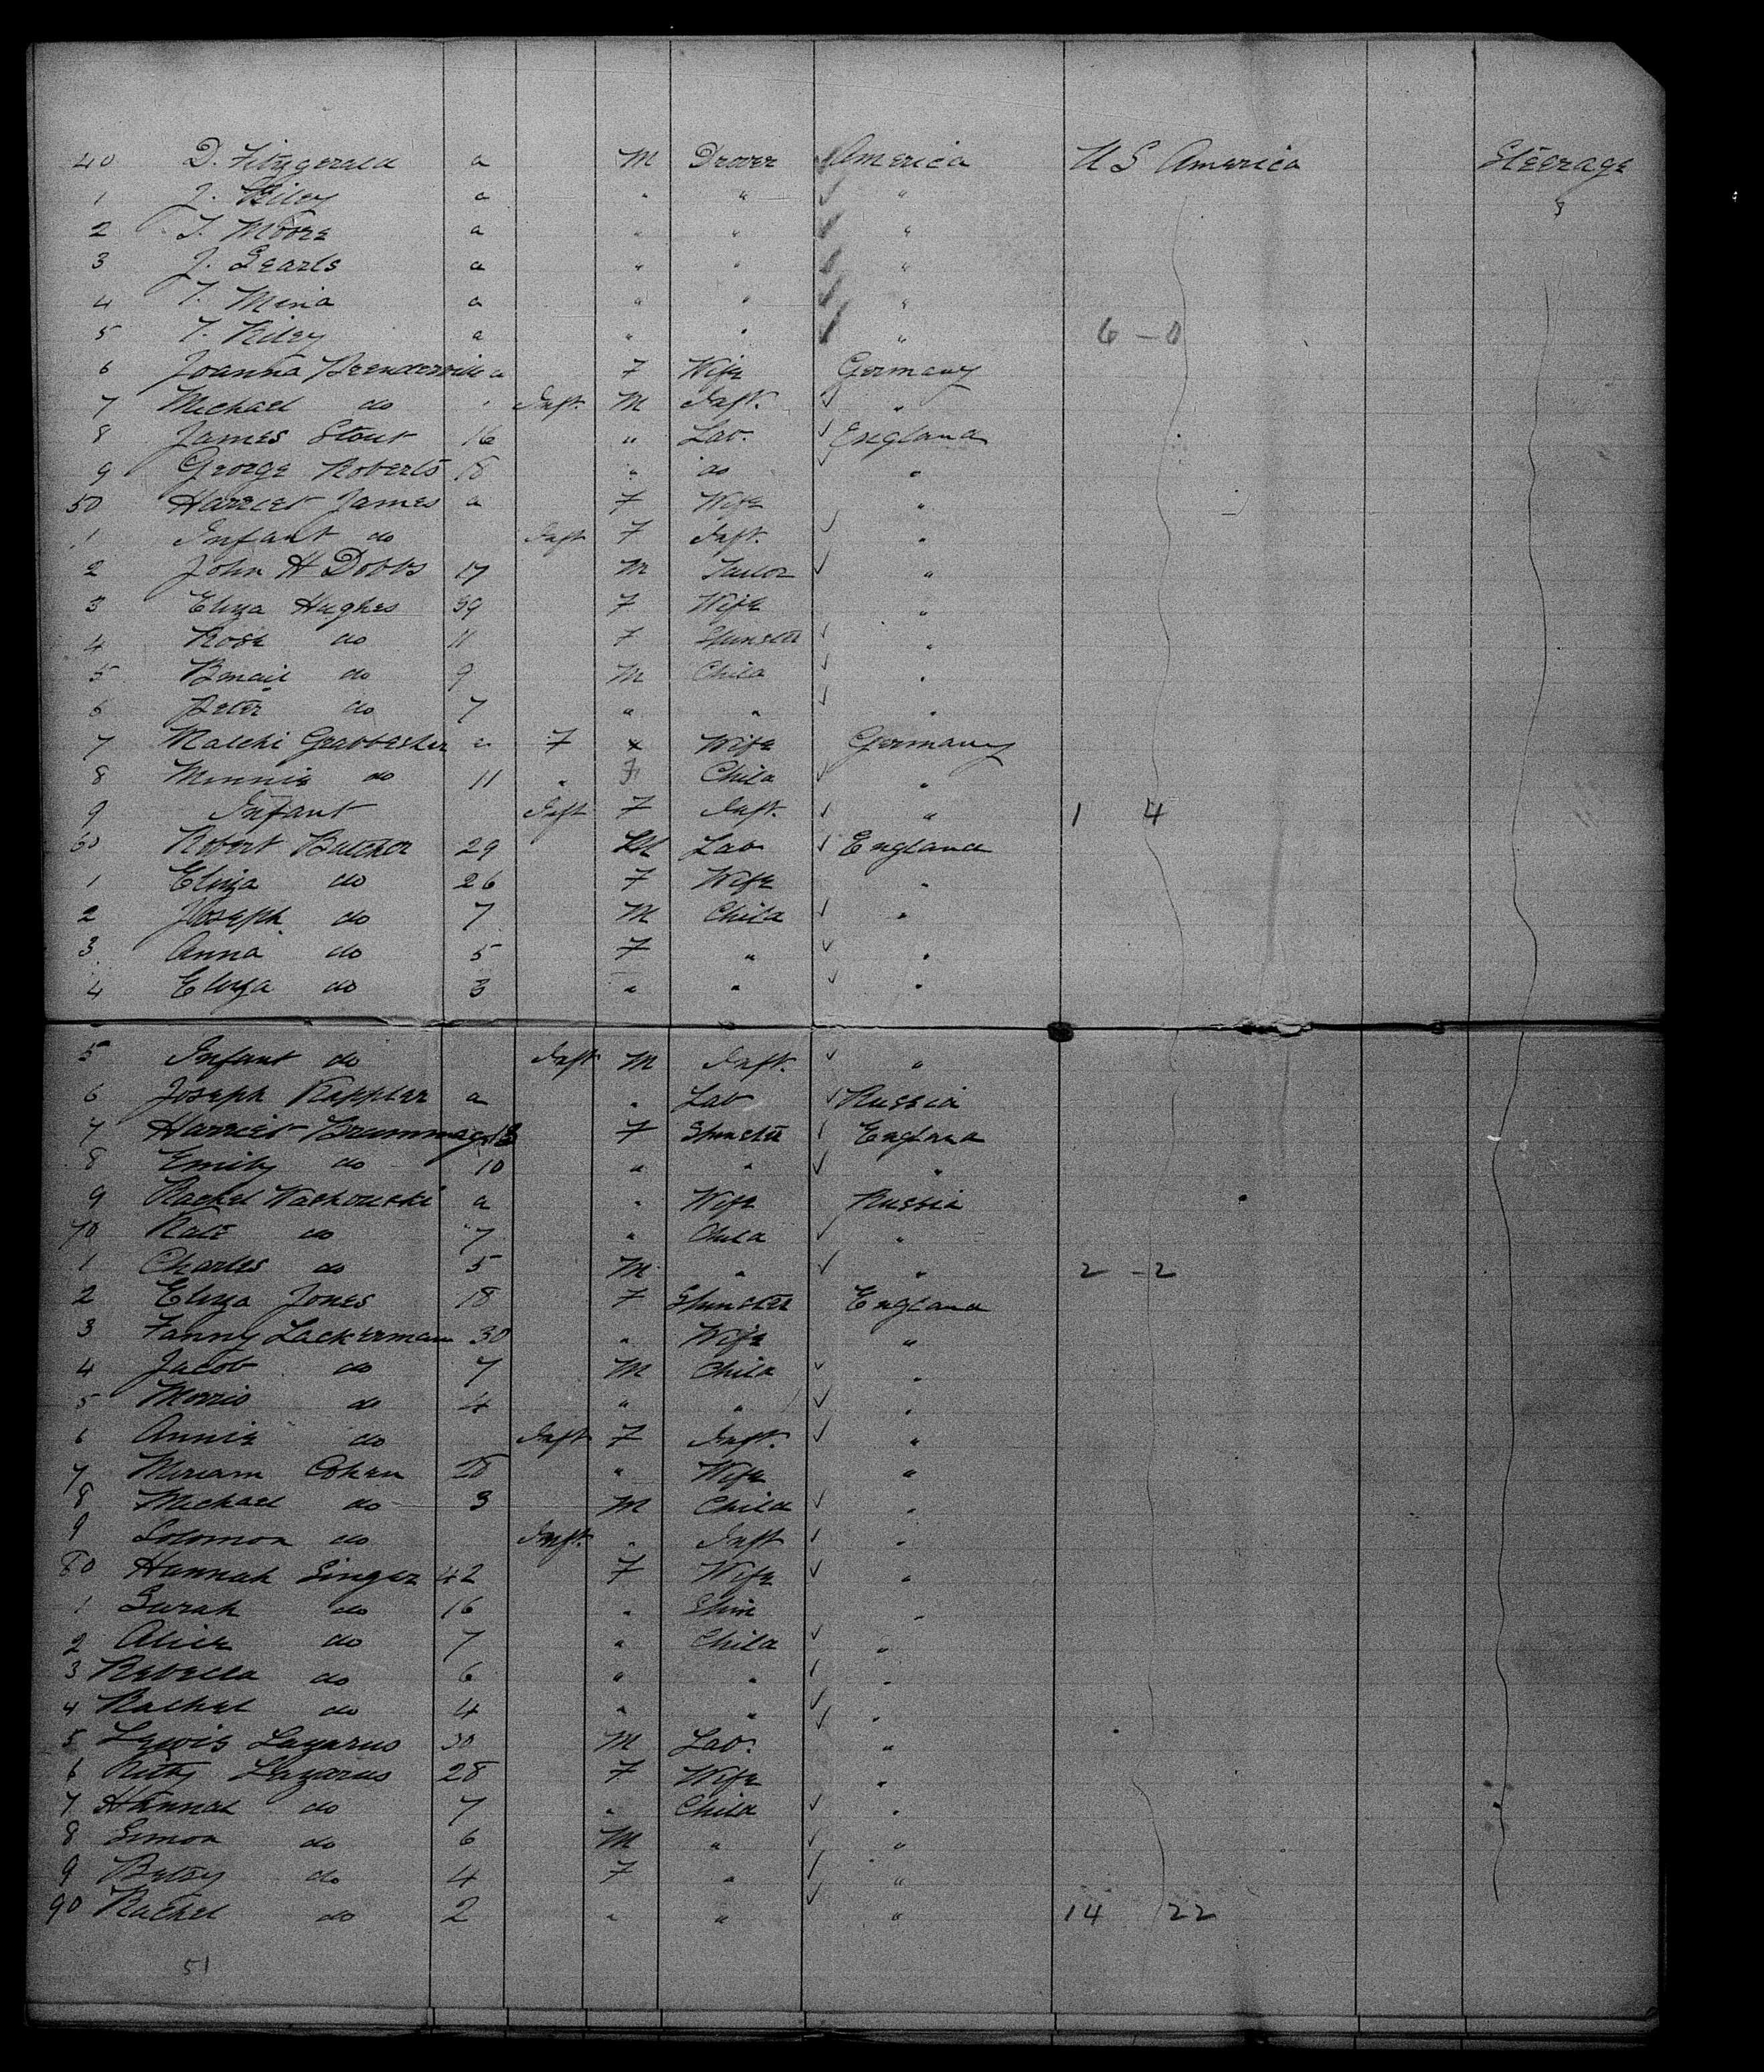 40 D. Fitzgerald a M Drover America U S America Steerage
1 J. Riley a " " "
2 T. Moore a " " "
3 J. Searls a " " "
4 T. a " " "
5 T. Riley a " " " 6 - 0
6 Joanna a F Wife Germany
7 Michael do Inft. M Inft. "
8 James Stout 16 " Lab. England
9 George Roberts 18 " do "
50 Harriet James a F Wife "
1 Infant do Inft F Inft. "
2 John H Dobbs 17 M Tailor "
3 Eliza Hughes 39 F Wife "
4 Rose do 11 F Spinster "
5 do 9 M Child "
6 Peter do 7 " " "
7 Malchi a F x Wife Germany
8 Minnie do 11 " F Child "
9 Infant Inft F Inft. " 1 4
60 Robert Butcher 29 M Lab England
1 Eliza do 26 F Wife "
2 Joseph do 7 M Child "
3 Anna do 5 F " "
4 Eliza do 3 " " "
5 Infant do Inft M Inft. "
6 Joseph Kappler a " Lab Russia
7 Harriet 13 F Spinster England
8 Emily do 10 " " "
9 Rachel a " Wife Russia
70 Kate do 7 " Child "
1 Charles do 5 M " " 2 - 2
2 Eliza Jones 18 F Spinster England
3 Fanny Lackerman 30 " Wife "
4 Jacob do 7 M Child "
5 Morris do 4 " " "
6 Annie do Inft F Inft. "
7 Miriam Cohen 28 " Wife "
8 Michael do 3 M Child "
9 Solomon do Inft. " Inft "
80 Hannah Singer 42 F Wife "
1 Sarah do 16 " Spin "
2 Alice do 7 " Child "
3 Rebecca do 6 " " "
4 Rachel do 4 " " "
5 Lewis Lazarus 30 M Lab. "
6 Kitty Lazarus 28 F Wife "
7 Hannah do 7 " Child "
8 Simon do 6 M " "
9 Betsy do 4 F " "
90 Rachel do 2 " " " 14 22
51